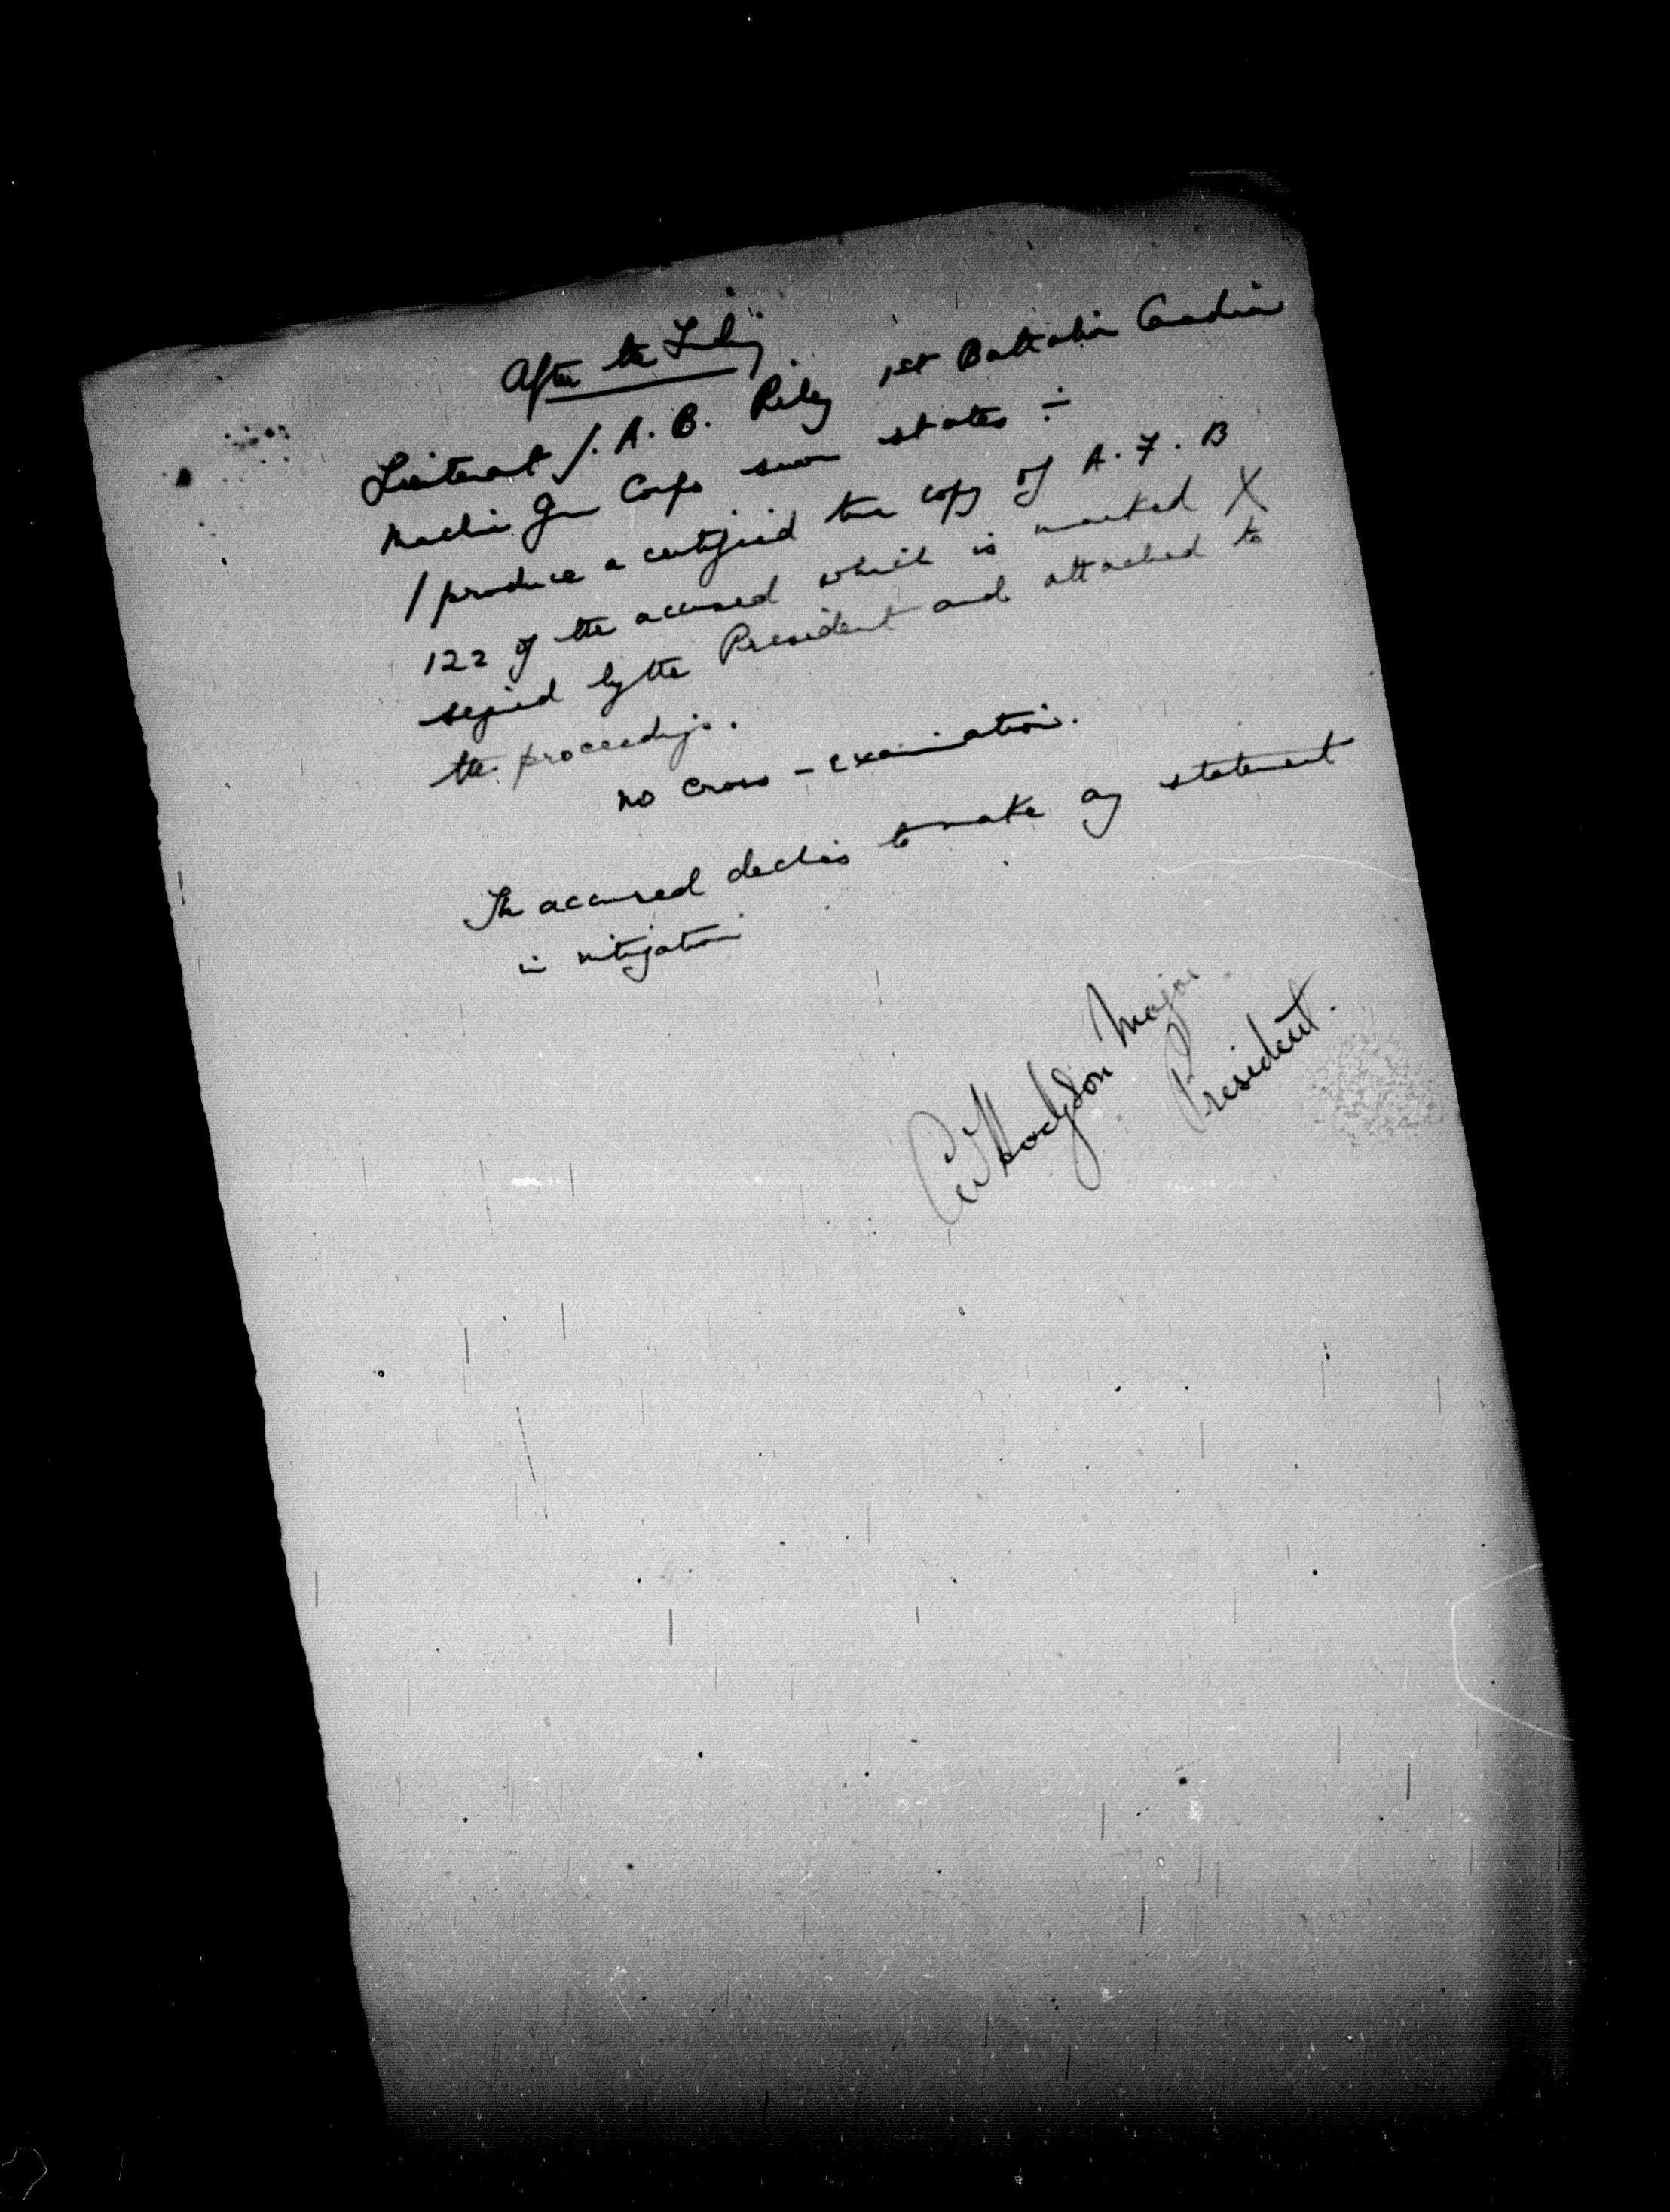 After the Finding
Lieutenant J. A. B. Riley 1st Battalion Canadian
Machine Gun Corps sworn states :-
I produce a certified true copy of A. F. B
122 of the accused which is marked X
signed by the President and attached to
the proceedings.
No cross-examination.
The accused declines to make any statement
in mitigation
CW Hodgson Major
President.